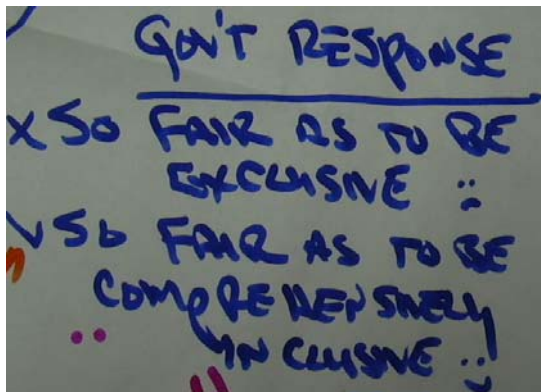 GOV'T RESPONSE
x SO FAIR AS TO BE
EXCLUSIVE
√ SO FAIR AS TO BE
COMPREHENSIVELY
INCLUSIVE